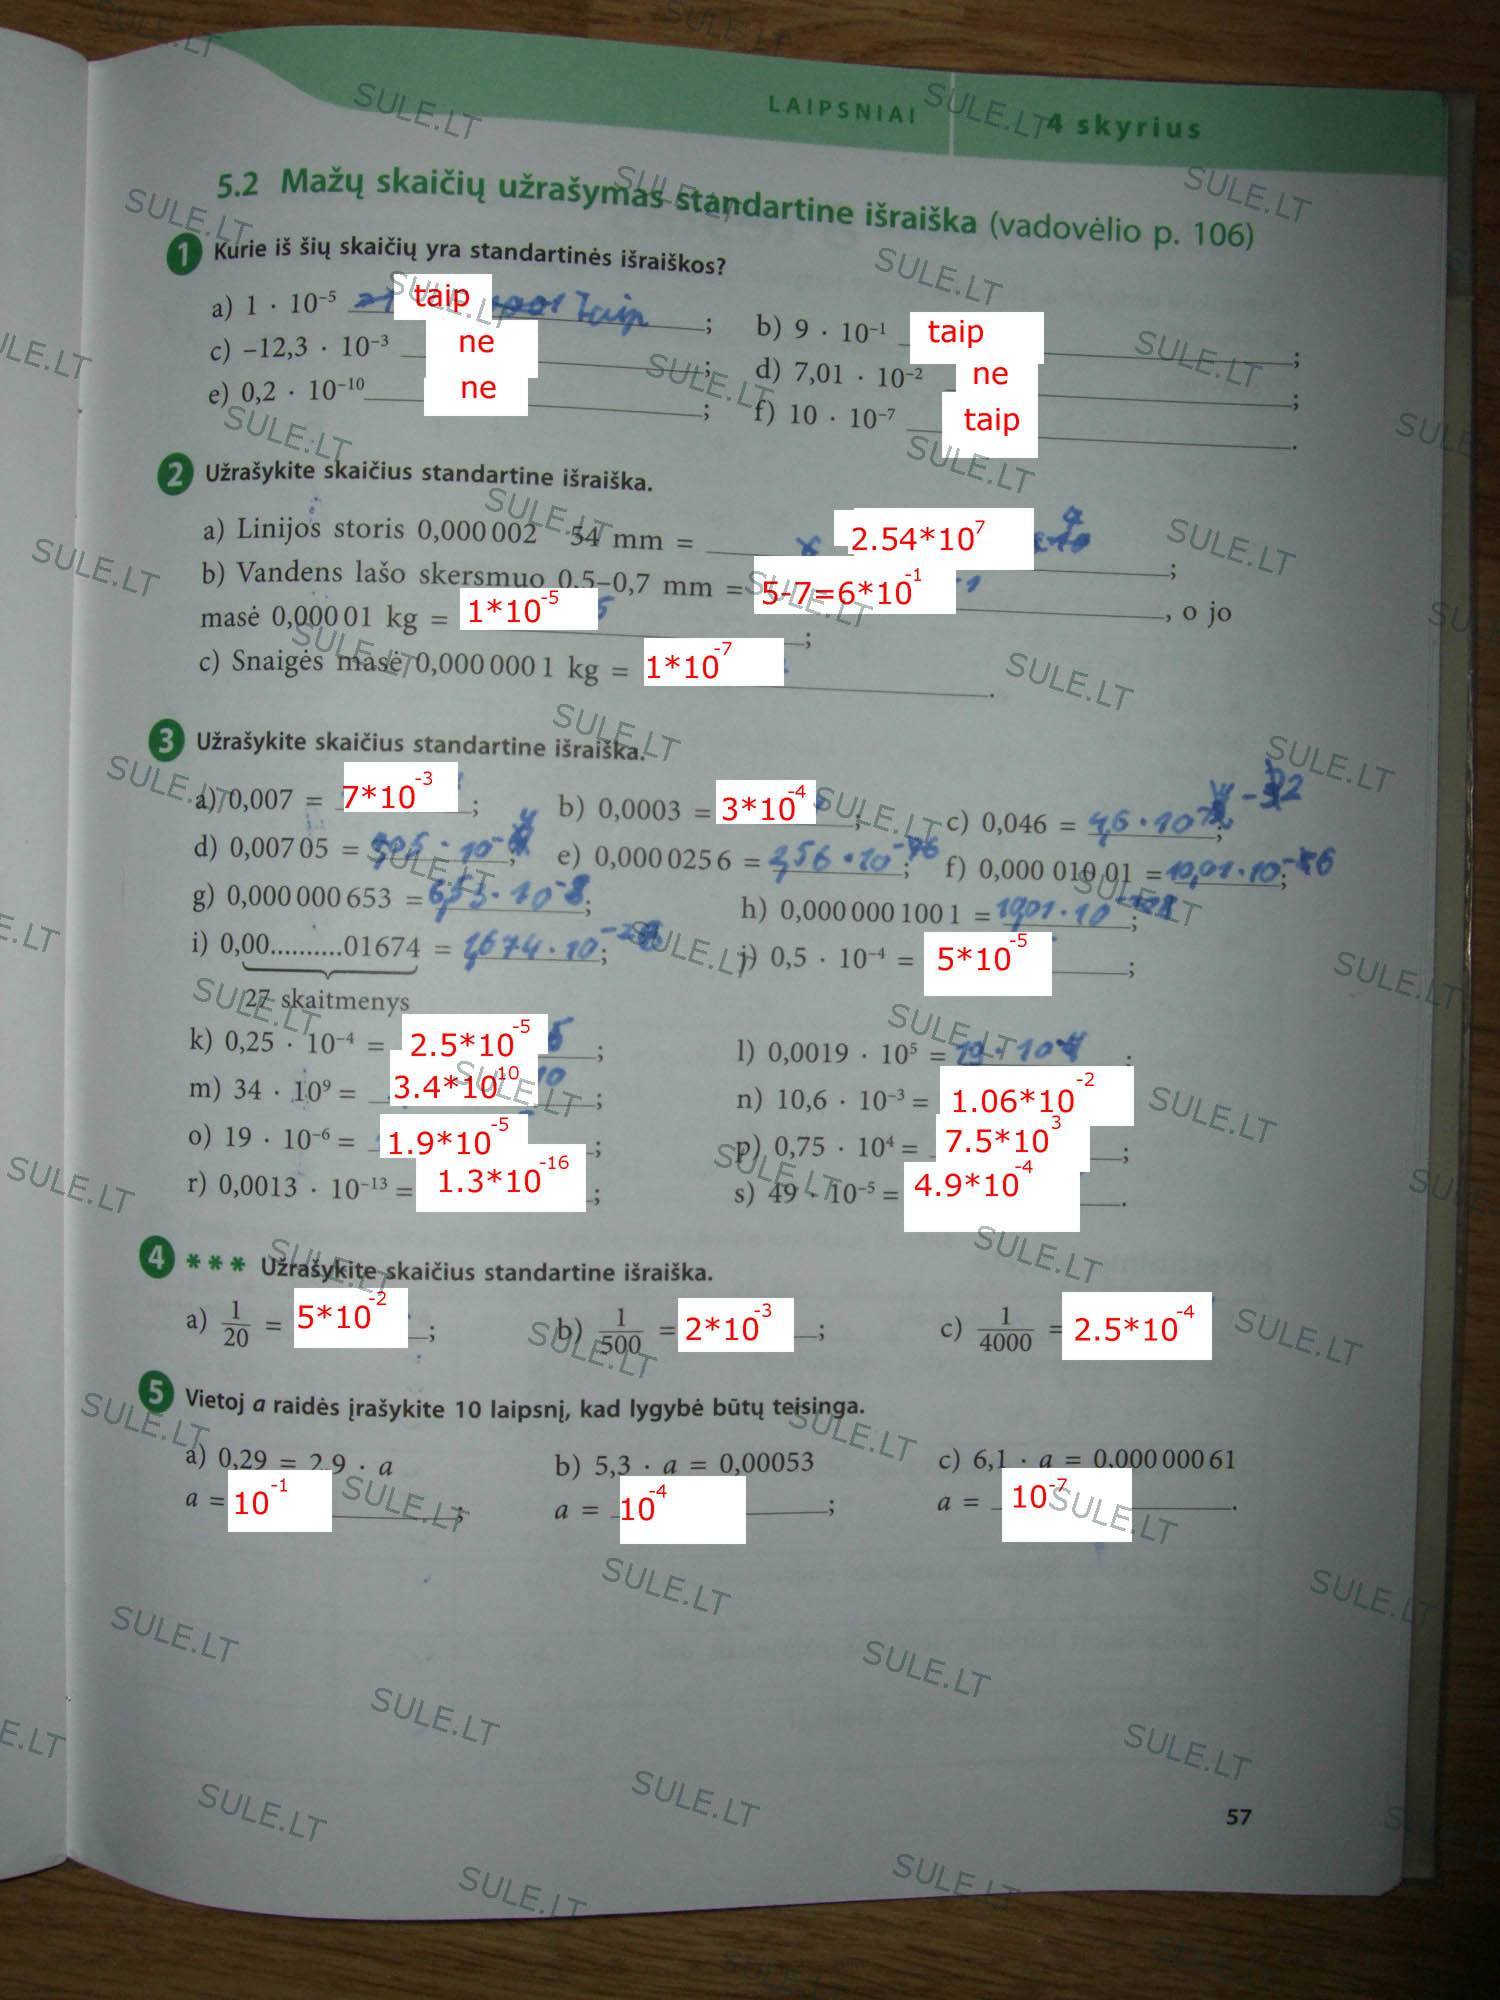 LAIPSNIAI 4 skyrius
5.2 Mažų skaičių užrašymas standartine išraiška (vadovėlio p. 106)
1 Kurie iš šių skaičių yra standartinės išraiškos?
a) 1 · 10⁻⁵ taip Taip ; b) 9 · 10⁻¹ taip ;
c) –12,3 · 10⁻³ ne ; d) 7,01 · 10⁻² ne ;
e) 0,2 · 10⁻¹⁰ ne ; f) 10 · 10⁻⁷ taip .
2 Užrašykite skaičius standartine išraiška.
a) Linijos storis 0,000 002 54 mm = 2.54*10⁷ ;
b) Vandens lašo skersmuo 0,5–0,7 mm = 5-7=6*10⁻¹ , o jo
masė 0,000 01 kg = 1*10⁻⁵ ;
c) Snaigės masė 0,000 000 1 kg = 1*10⁻⁷ .
3 Užrašykite skaičius standartine išraiška.
a) 0,007 = 7*10⁻³ ; b) 0,0003 = 3*10⁻⁴ ; c) 0,046 = 4,6 · 10 ;
d) 0,007 05 = ; e) 0,000 025 6 = 2,56 · 10 ; f) 0,000 010 01 = ;
g) 0,000 000 653 = 6,53 · 10⁻⁸ ; h) 0,000 000 100 1 = ;
i) 0,00..........01674 = 1,674 · 10 ; j) 0,5 · 10⁻⁴ = 5*10⁻⁵ ;
27 skaitmenys
k) 0,25 · 10⁻⁴ = 2.5*10⁻⁵ ; l) 0,0019 · 10⁵ = ;
m) 34 · 10⁹ = 3.4*10¹⁰ ; n) 10,6 · 10⁻³ = 1.06*10⁻²
o) 19 · 10⁻⁶ = 1.9*10⁻⁵ ; p) 0,75 · 10⁴ = 7.5*10³ ;
r) 0,0013 · 10⁻¹³ = 1.3*10⁻¹⁶ ; s) 49 · 10⁻⁵ = 4.9*10⁻⁴ .
4 *** Užrašykite skaičius standartine išraiška.
a) 1/20 = 5*10⁻² ; b) 1/500 = 2*10⁻³ ; c) 1/4000 = 2.5*10⁻⁴
5 Vietoj a raidės įrašykite 10 laipsnį, kad lygybė būtų teisinga.
a) 0,29 = 2,9 · a b) 5,3 · a = 0,00053 c) 6,1 · a = 0,000 000 61
a = 10⁻¹ ; a = 10⁻⁴ ; a = 10⁻⁷ .
57
SULE.LT